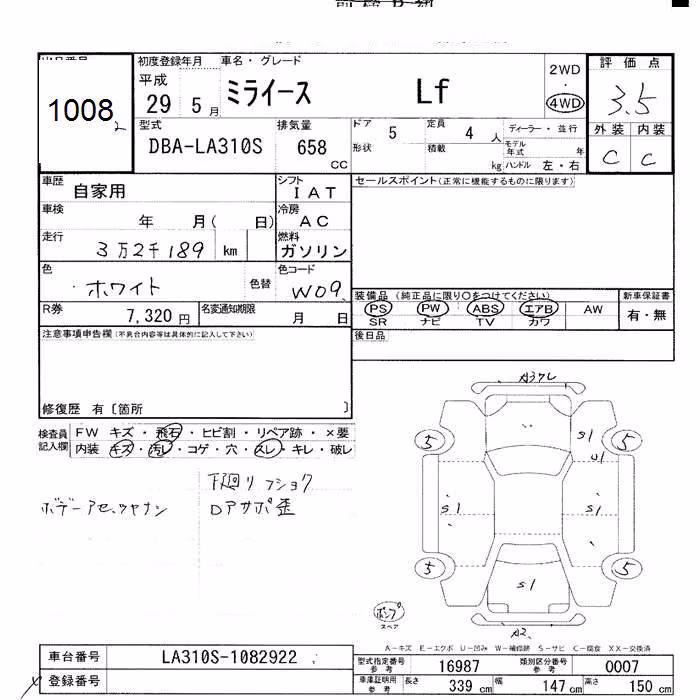 1008
初度登録年月
車名・グレード
平成
29 5月
ミライース Lf
2WD
・
4WD
評価点
3.5
外装 内装
C C
型式
DBA-LA310S
排気量
658
CC
ドア 5
形状
定員 4 人
積載 kg
ディーラー・並行
モデル年式 年
ハンドル 左・右
車歴 自家用
シフト
IAT
セールスポイント(正常に機能するものに限ります)
車検 年 月( 日)
冷房
AC
走行 3万2千189 km
燃料
ガソリン
色
ホワイト
色替
色コード
W09
装備品 (純正品に限り○をつけてください)
PS PW ABS エアB AW
SR ナビ TV カワ
新車保証書
有・無
R券 7,320 円
名変通知期限 月 日
後日品
注意事項申告欄(不具合内容等は具体的に記入して下さい)
修復歴 有〔箇所 〕
検査員記入欄
FW キズ・飛石・ヒビ割・リペア跡・×要
内装 キズ・汚レ・コゲ・穴・スレ・キレ・破レ
下廻リ
Dアサポ歪
5 5
S1
U1
S1 S1
5 5
S1
ポンプ
スペア
A2
A-キズ E-エクボ U-凹み W-補修跡 S-サビ C-腐食 XX-交換済
車台番号 LA310S-1082922
登録番号
型式指定番号 参考 16987
類別区分番号 参考 0007
車庫証明用 参考
長さ 339 cm
幅 147 cm
高さ 150 cm